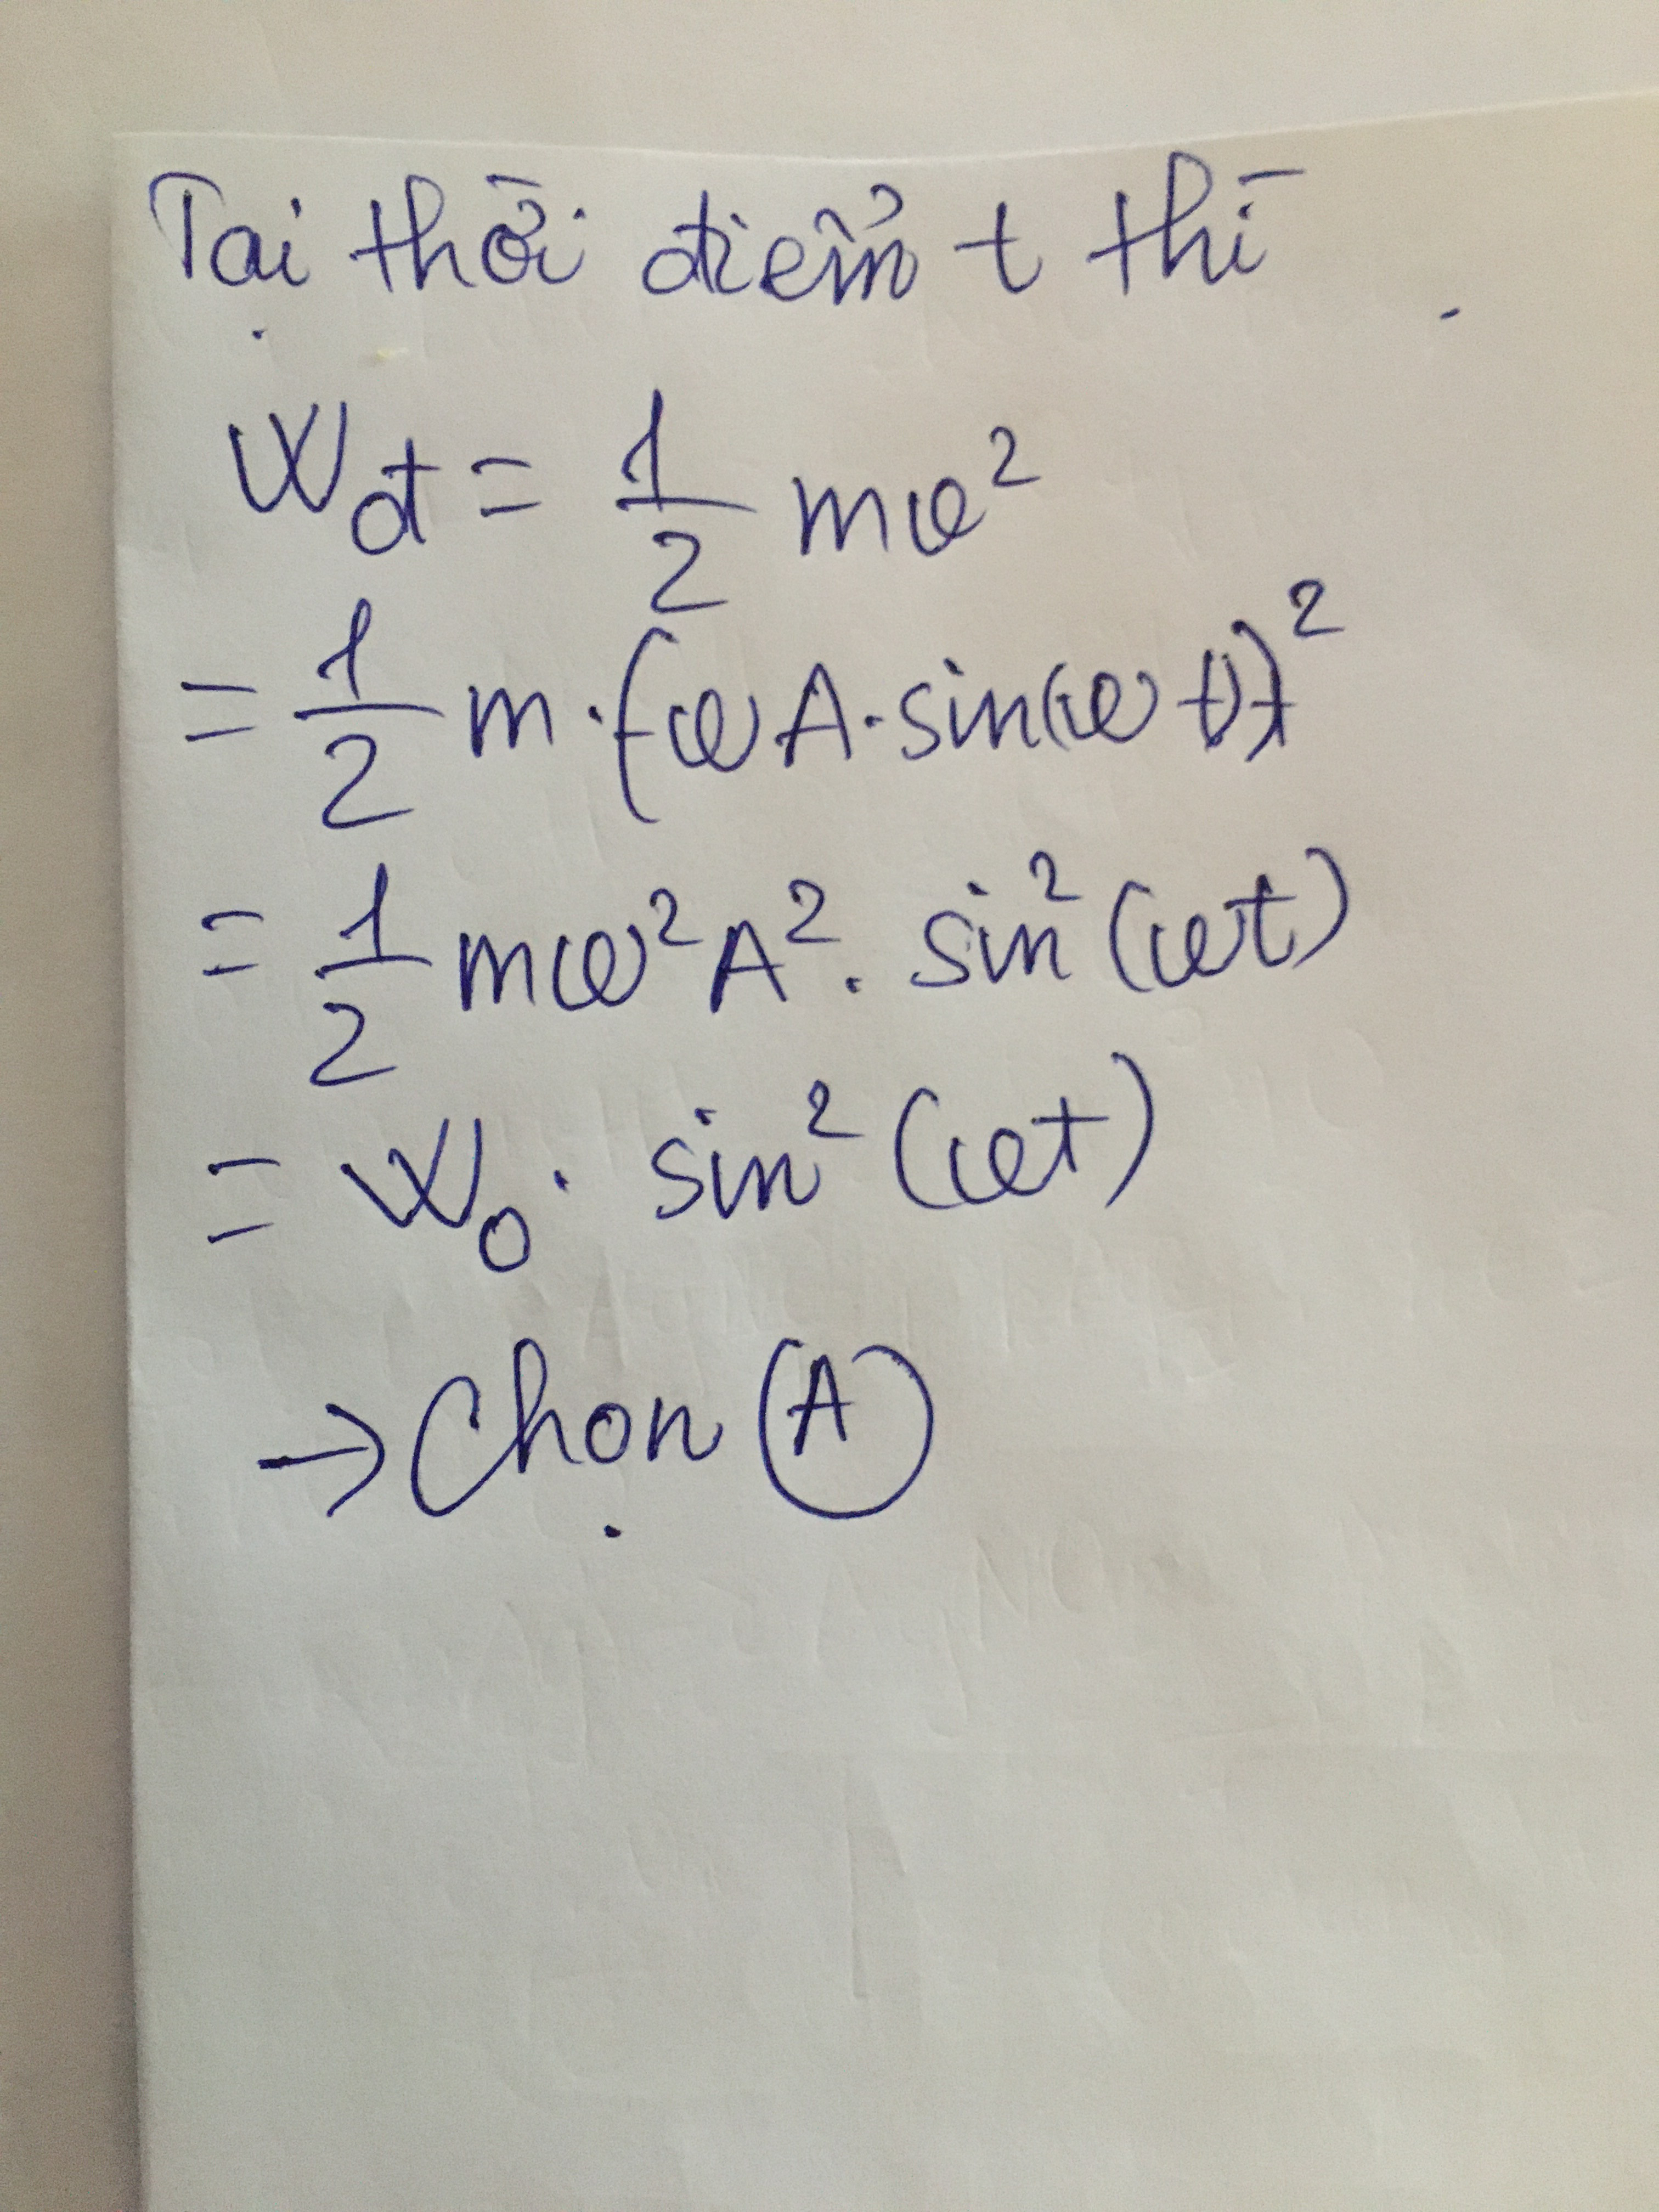 Tại thời điểm t thì
Wđ = 1/2 mv²
= 1/2 m.(-ωA.sin(ωt))²
= 1/2 mω²A². sin²(ωt)
= W₀. sin²(ωt)
→ Chọn A